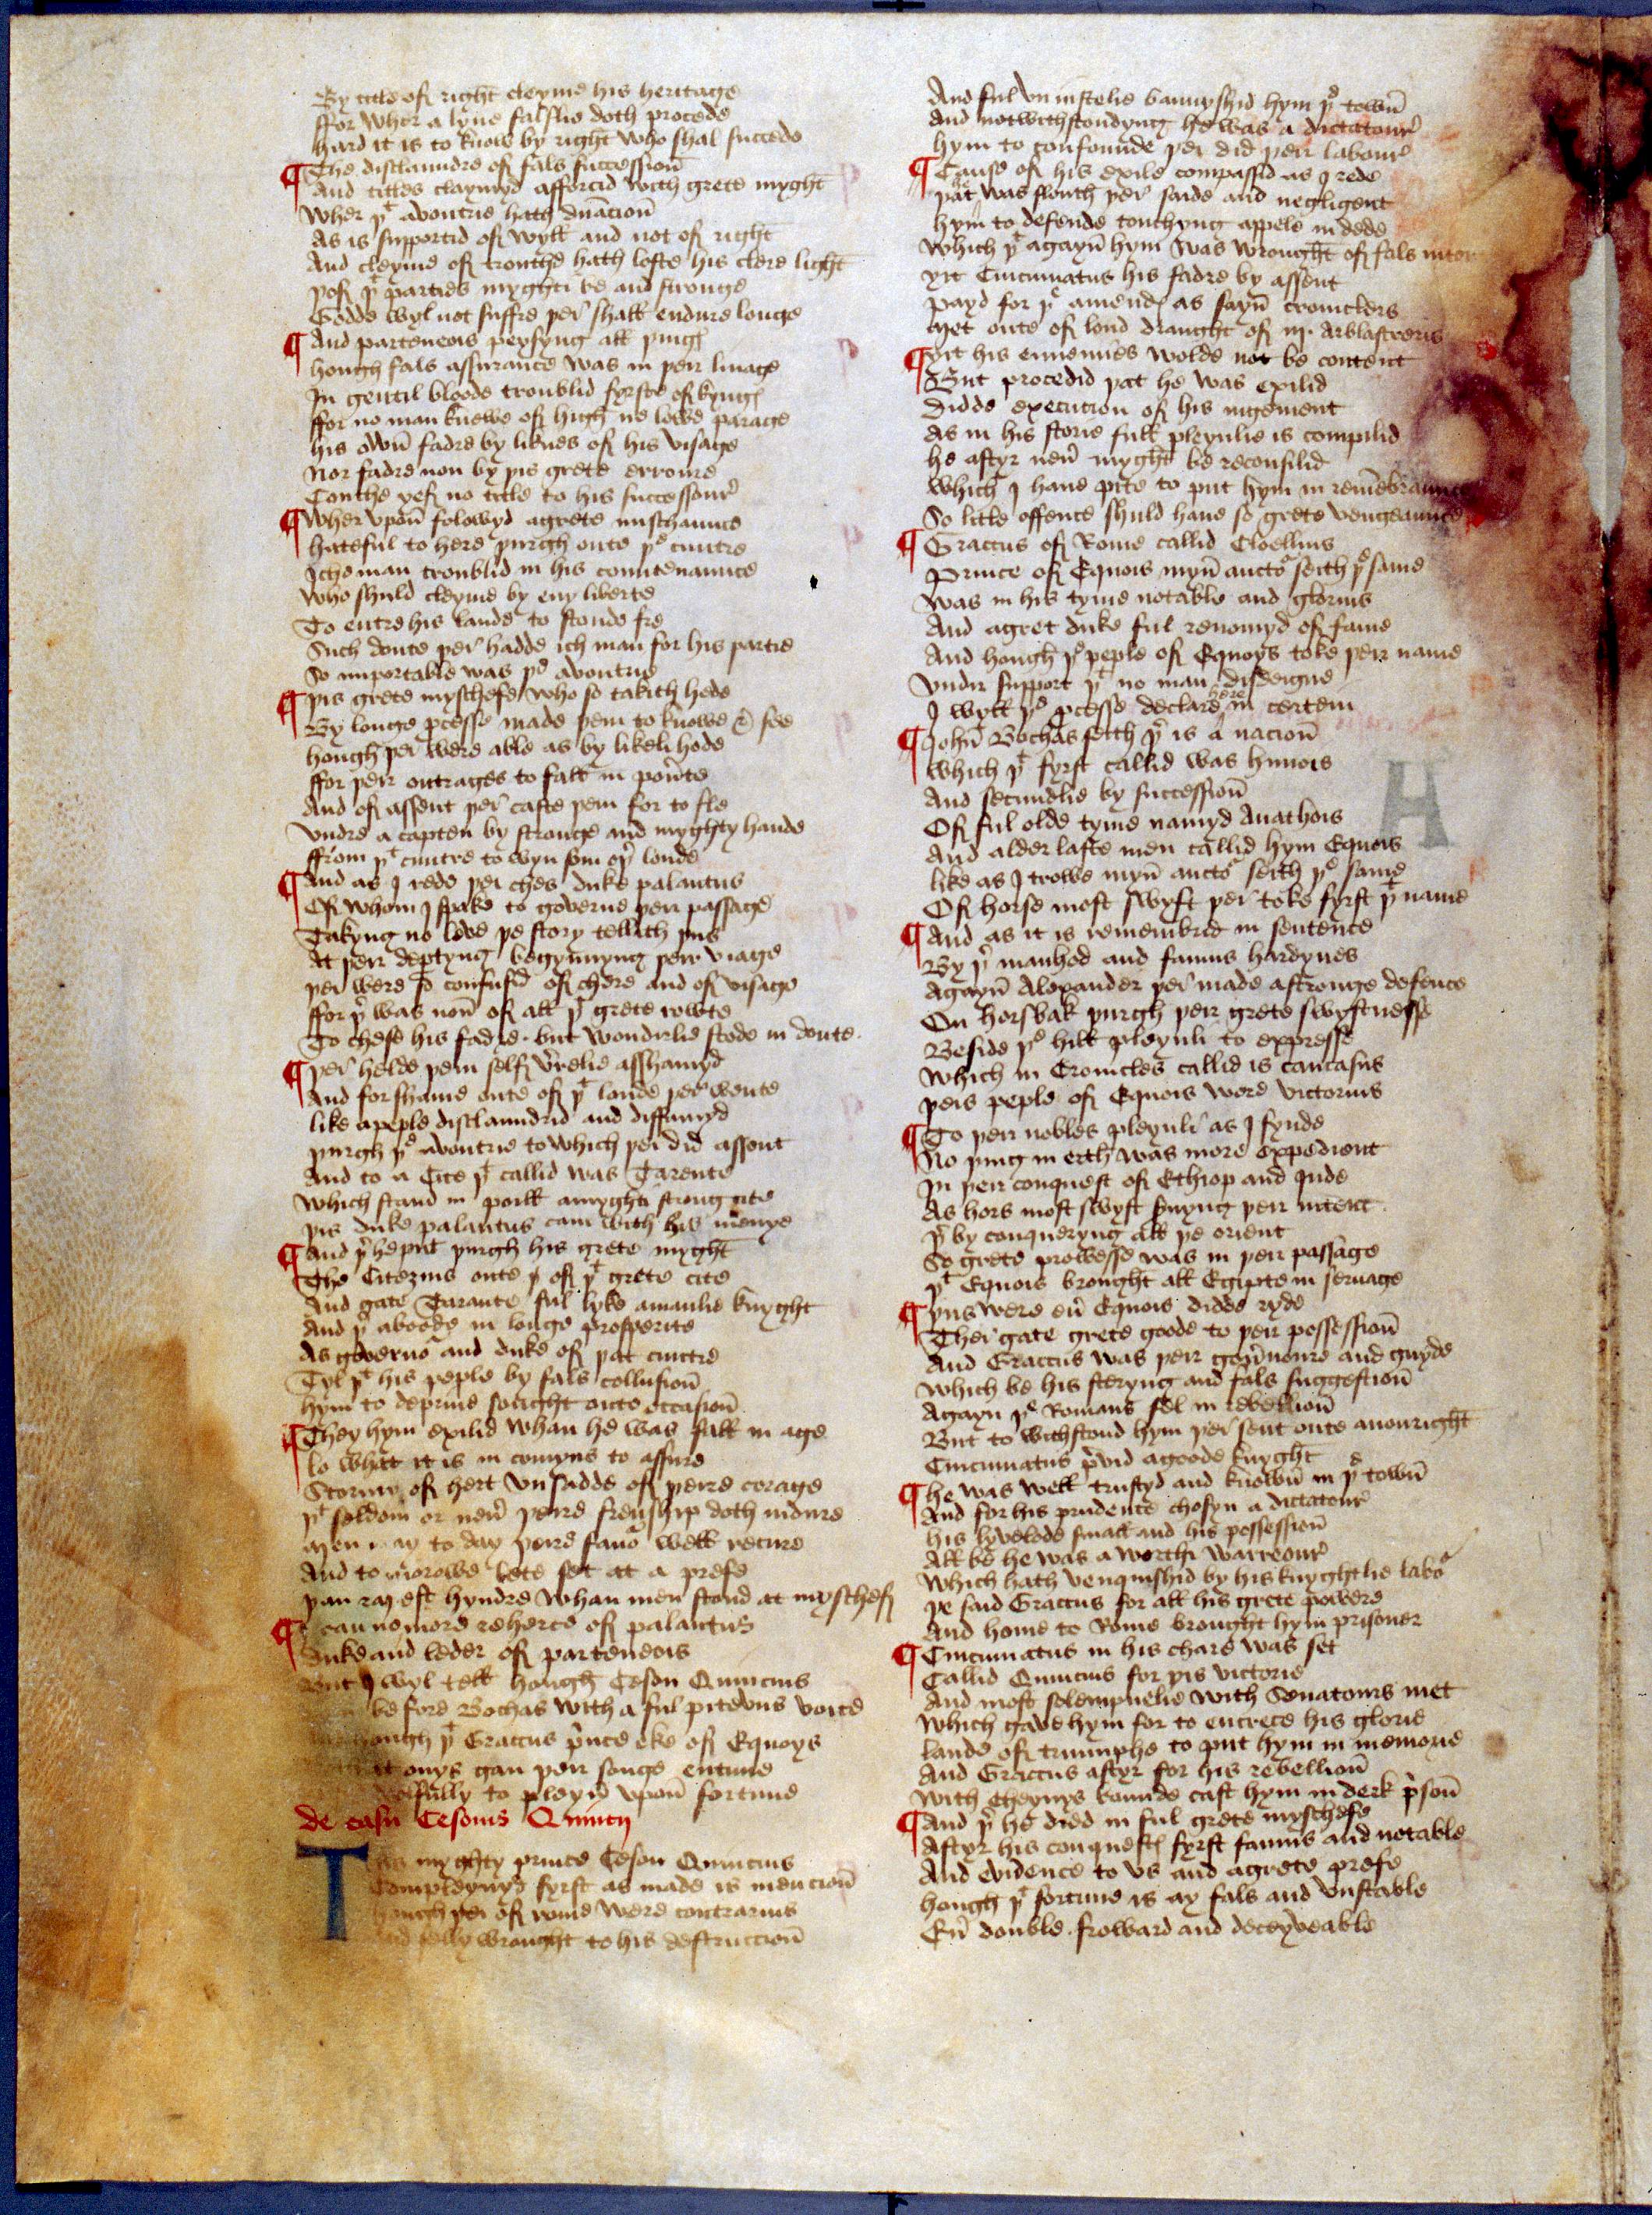 By title of right cleyme his heritage
ffor wher a lyne falslie doth procede
hard it is to know by right who shal succede
¶ The disclaundre of fals successioñ
And titles claymyd afforcid with grete myght
Wher þt avoutrie hath dñacioñ
As is supportid of wyll and not of right
And cleyme of trouthe hath loste his clere light
þof þe parties myghti be and stronge
Godde wyl not suffre þer shall endure longe
¶ And parteneois peysyng all þing
hough fals assurance was in þeir linage
In gentil bloode troublid fyrste of kyng
ffor no man knewe of high ne lowe parage
his owñ fadre by liknes of his visage
Nor fadre non by þis grete erroure
Conthe yef no title to his successour
¶ Wher vpoñ folowyd a grete mischaunce
hateful to here þurgh oute þe cuntre
Iche man troublid in his countenaunce
Who shuld cleyme by eny liberte
To entre his lande to stonde fre
Such doute þer hadde ich man for his partie
So importable was þe avoutrie
¶ þis grete myschefe who so takith hede
By longe pcesse made þem to knowe & see
hough þei were able as by likelihode
ffor þeir outrages to fall in pouerte
And of assent þei caste þem for to fle
Vndre a capten by stronge and myghty hande
ffrom þt cuntre to wyn som oþer londe
¶ And as I rede þei ches duke palantus
Of whom I spake to governe þeir passage
Takyng no leve þe story tellith þus
At þeir deptyng begynnyng þeir viage
þei were so confusid of chere and of visage
ffor þer was noñ of all þt grete rowte
To chese his fadre . but wondirlie stode in doute .
¶ þei helde þem self verelie asshamyd
And for shame oute of þt lande þei wente
like a peple disclaundrid and diffamyd
þurgh þe avoutrie to which þei did assent
And to a Cite þt callid was Tarente
Which stand in poill a myghti strong cite
þis duke palantus cam with his menye
¶ And þer he put þurgh his grete myght
The Citezins oute of þt grete cite
And gate Tarante ful lyke a manlie knyght
And þer aboode in longe prosperite
As governor and duke of þat cuntre
Tyl þt his peple by fals collusioñ
hym to deprive sought occasioñ
¶ They hym exilid whan he was fall in age
lo what it is in comyns to assure
Stormy of hert vnsadde of þeire corage
þt seldom or neuer þeire frenship doth indure
Men may to day þeire favor well recure
And to morowe lete set at a prefe
þan rayest hyndre whan men stond at myschef
¶ I can no more reherce of palantus
Duke and leder of parteneois
But I wyl tell hough Ceson Quincius
before Bochas with a ful pitevous voice
hough þt Graccus prince eke of Equoys
onys gan þeir songe entune
fully to pleyn vpoñ fortune
de casu Cesonis Quincij
This myghty prince Ceson Quincius
Compleynyd fyrst as made is mencioñ
hough þei of rome were contrarius
And felly wrought to his destruccioñ
And ful vn iustelie bannyshid hym þe towñ
And notwithstondyng he was a dictatour
hym to confounde þei did þeir labour
¶ Cause of his exile compassid as I rede
þat he was slouth þei saide and negligent
hym to defende touchyng appele in dede
Which þt agayñ hym was wrought of fals
yit Cincinnatus his fadre by assent
payd for þe amende as sayñ croniclers
Met oute of lond draught of iij. Arblasteeris
¶ yit his ennemies wolde not be content
But procedid þat he was exilid
Didde execution of his iugement
As in his storie full pleynlie is compilid
he aftyr neuer myght be reconsilid
Which I haue pite to put hym in remembraunce
So litle offence shuld haue so grete vengeaunce
¶ Graccus of Rome callid Cloellius
Prince of Equois myñ auctor seith þe same
Was in his tyme notable and glorius
And a gret duke ful renomyd of fame
And hough þe peple of Equoys toke þeir name
Vndir support þt no man disdeigne
I wyll þe pcesse declare here in certein
¶ Iohñ Bochas seith þer is a nacioñ
Which þt fyrst callid was hunois
And secundlie by successioñ
Of ful olde tyme namyd Auathois
And alder laste men callid hym Equois
like as I trowe myñ auctor seith þe same
Of horse most swyft þei toke fyrst þt name
¶ And as it is remembrid in sentence
By þer manhod and famus hardynes
Agayñ Alexander þei made a stronge defence
On horsbak þurgh þeir grete swyftnesse
Beside þe hill pleynli to expresse
Which in Cronicles callid is caucasus
þeis peple of Equois were victorius
¶ To þeir nobles pleynli as I fynde
No þing in erth was more expedient
In þeir conquest of Ethiop and Inde
As hors most swyft seruyng þeir intent .
þer by conqueryng all þe orient
So grete prowesse was in þeir passage
þt Equois brought all Egipte in seruage
¶ þus were euer Equois didde ryde
Thei gate grete goode to þeir possessioñ
And Graccus was þeir gouernoure and guyde
Which be his steryng and fals suggestioñ
Agayn þe Romans fel in rebellioñ
But to withstond hym þei sent oute anonright
Cincinnatus provid a goode knyght
¶ he was well trustyd and knowñ in þe towñ
And for his prudence chosyn a dictatour
his lyvelode small and his possessioñ
All be he was a worthi warreour
Which hath venquishid by his knyghtlie labor
þe said Graccus for all his grete powere
And home to Rome brought hym prisoner
¶ Cincinnatus in his chare was set
Callid Quincius for þis victorie
And most solempnelie with Senatours met
Which gave hym for to encrece his glorie
lande of triumphe to put hym in memorie
And Graccus aftyr for his rebellioñ
With cheynys bounde cast hym in derk prisoñ
¶ And þer he died in ful grete myschefe
Aftyr his conquest fyrst famus and notable
And evidence to vs and a grete prefe
hough þt fortune is ay fals and vnstable
Euer double . froward and deceyveable